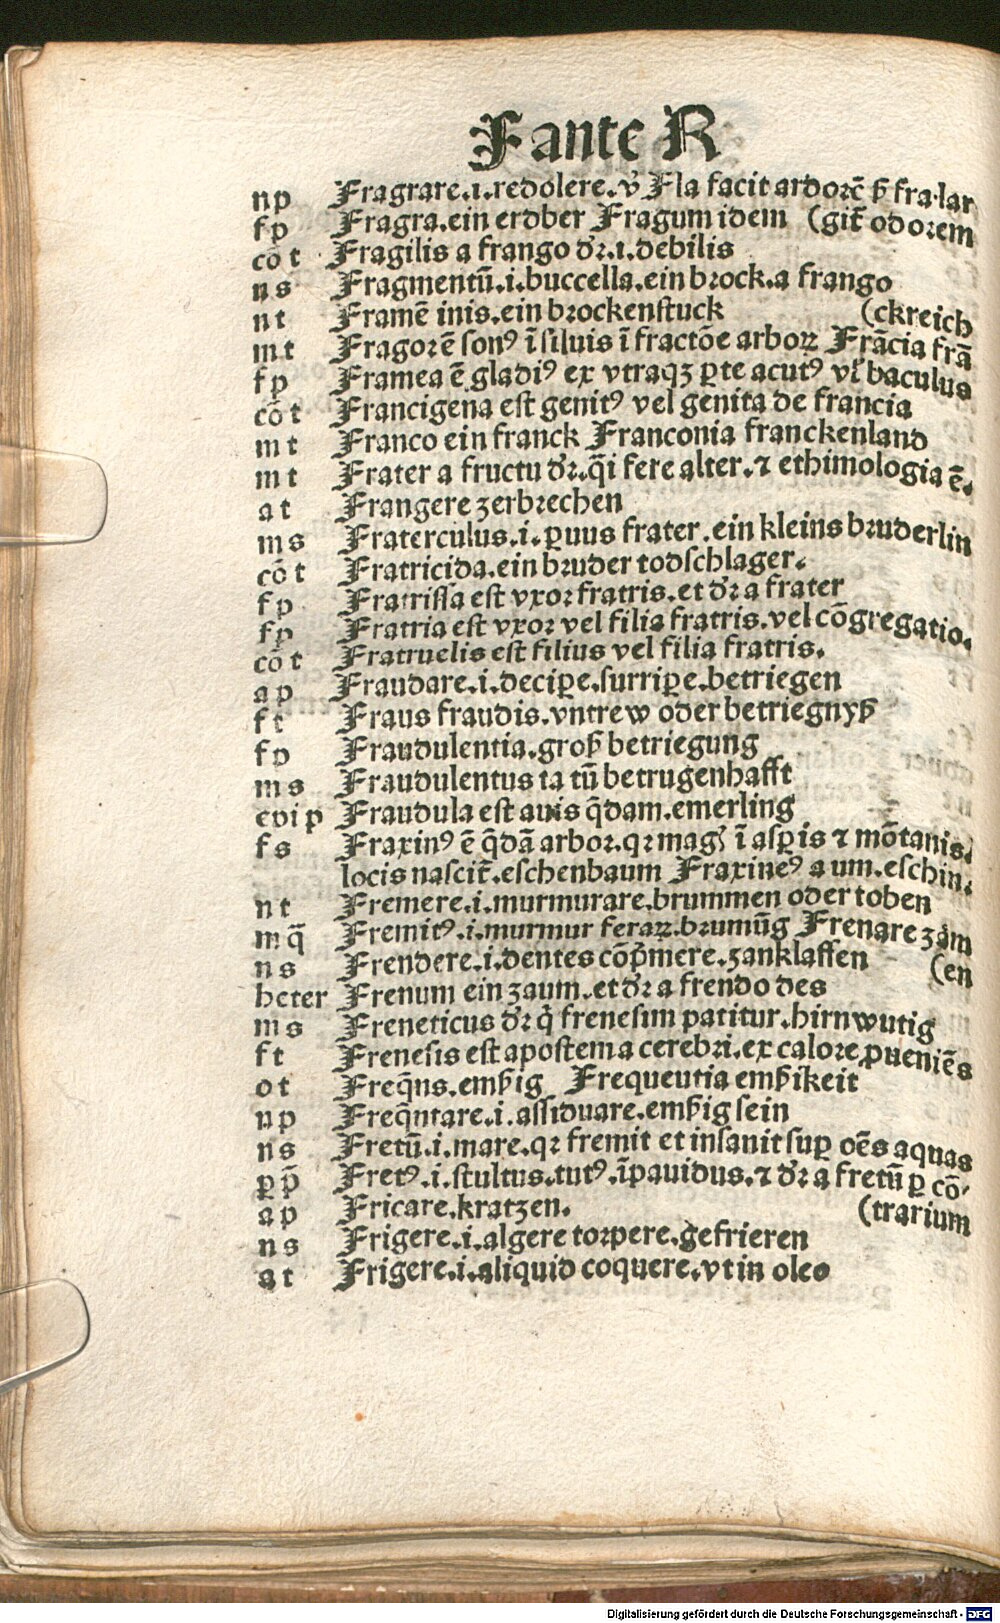 Fante R
np Fragrare.i.redolere.v̉ Fla facit ardorē ꝑ fra.lar
fp Fragra.ein erdber Fragum idem (git̄ odorem
cō t Fragilis a frango dr̄.i.debilis
ns Fragmentū.i.buccella.ein brock.a frango
nt Framē inis.ein brockenstuck (ckreich
mt Fragor ē sonꝰ ī siluis ī fractōe arboꝝ Frācia frā
fp Framea ē gladiꝰ ex vtraqꝫ ꝑte acutꝰ vl̄ baculus
cō t Francigena est genitꝰ vel genita de francia
mt Franco ein franck Franconia franckenland
mt Frater a fructu dr̄.q̄i fere alter.⁊ ethimologia ē.
at Frangere zerbrechen
ms Fraterculus.i.ꝑuus frater.ein kleins bruderlin
cō t Fratricida.ein bruder todschlager.
fp Fratrissa est vxor fratris.et dr̄ a frater
fp Fratria est vxor vel filia fratris.vel cōgregatio.
cō t Fratruelis est filius vel filia fratris.
ap Fraudare.i.decipe.surripe.betriegen
ft Fraus fraudis.vntrew oder betriegnyß
fp Fraudulentia.groß betriegung
ms Fraudulentus ta tū betrugenhafft
epi p Fraudula est auis q̄dam.emerling
fs Fraxinꝰ ē q̄dā arbor.qꝛ magꝭ ī asꝑis ⁊ mōtanis.
locis nascit̄.eschenbaum Fraxineꝰ a um.eschin.
nt Fremere.i.murmurare.brummen oder toben
mq̄ Fremitꝰ.i.murmur feraꝝ.brumūg Frenare zām
ns Frendere.i.dentes cōp̄mere.zanklaffen (en
heter Frenum ein zaum.et dr̄ a frendo des
ms Freneticus dr̄ q̄ frenesim patitur.hirnwutig
ft Frenesis est apostema cerebri.ex calore ꝓueniēs
ot Freq̄ns.emßig Frequentia emßikeit
np Freq̄ntare.i.assiduare.emßig sein
ns Fretū.i.mare.qꝛ fremit et insanit suꝑ oēs aquas
ꝑp̄ Fretꝰ.i.stultus.tutꝰ.īpauidus.⁊ dr̄ a fretū ꝑ cō-
ap Fricare.kratzen. (trarium
ns Frigere.i.algere torpere.gefrieren
at Frigere.i.aliquid coquere.vt in oleo
Digitalisierung gefördert durch die Deutsche Forschungsgemeinschaft - DFG